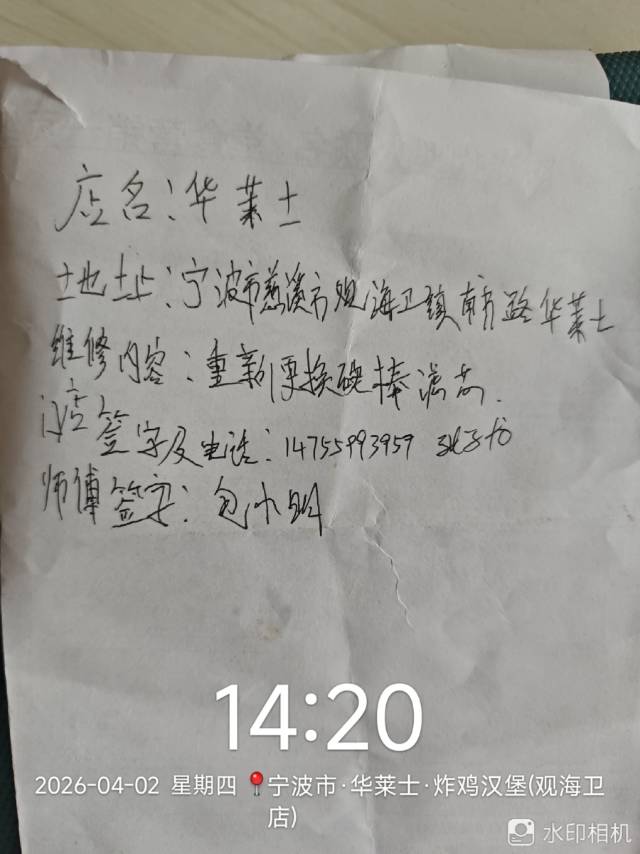 店名：华莱士
地址：宁波市慈溪市观海卫镇南市路华莱士
维修内容：重新更换碳棒滤芯.
门店签字及电话：14755993959
师傅签字：包小明
14:20
2026-04-02 星期四 宁波市·华莱士·炸鸡汉堡(观海卫
店)
水印相机